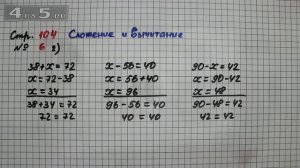 4.RU
Стр. 104 Сложение и вычитание
№ 6 2)
38+x=72 x-56=40 90-x=42
x=72-38 x=56+40 x=90-42
x=34 x=96 x=48
38+34=72 96-56=40 90-48=42
72=72 40=40 42=42